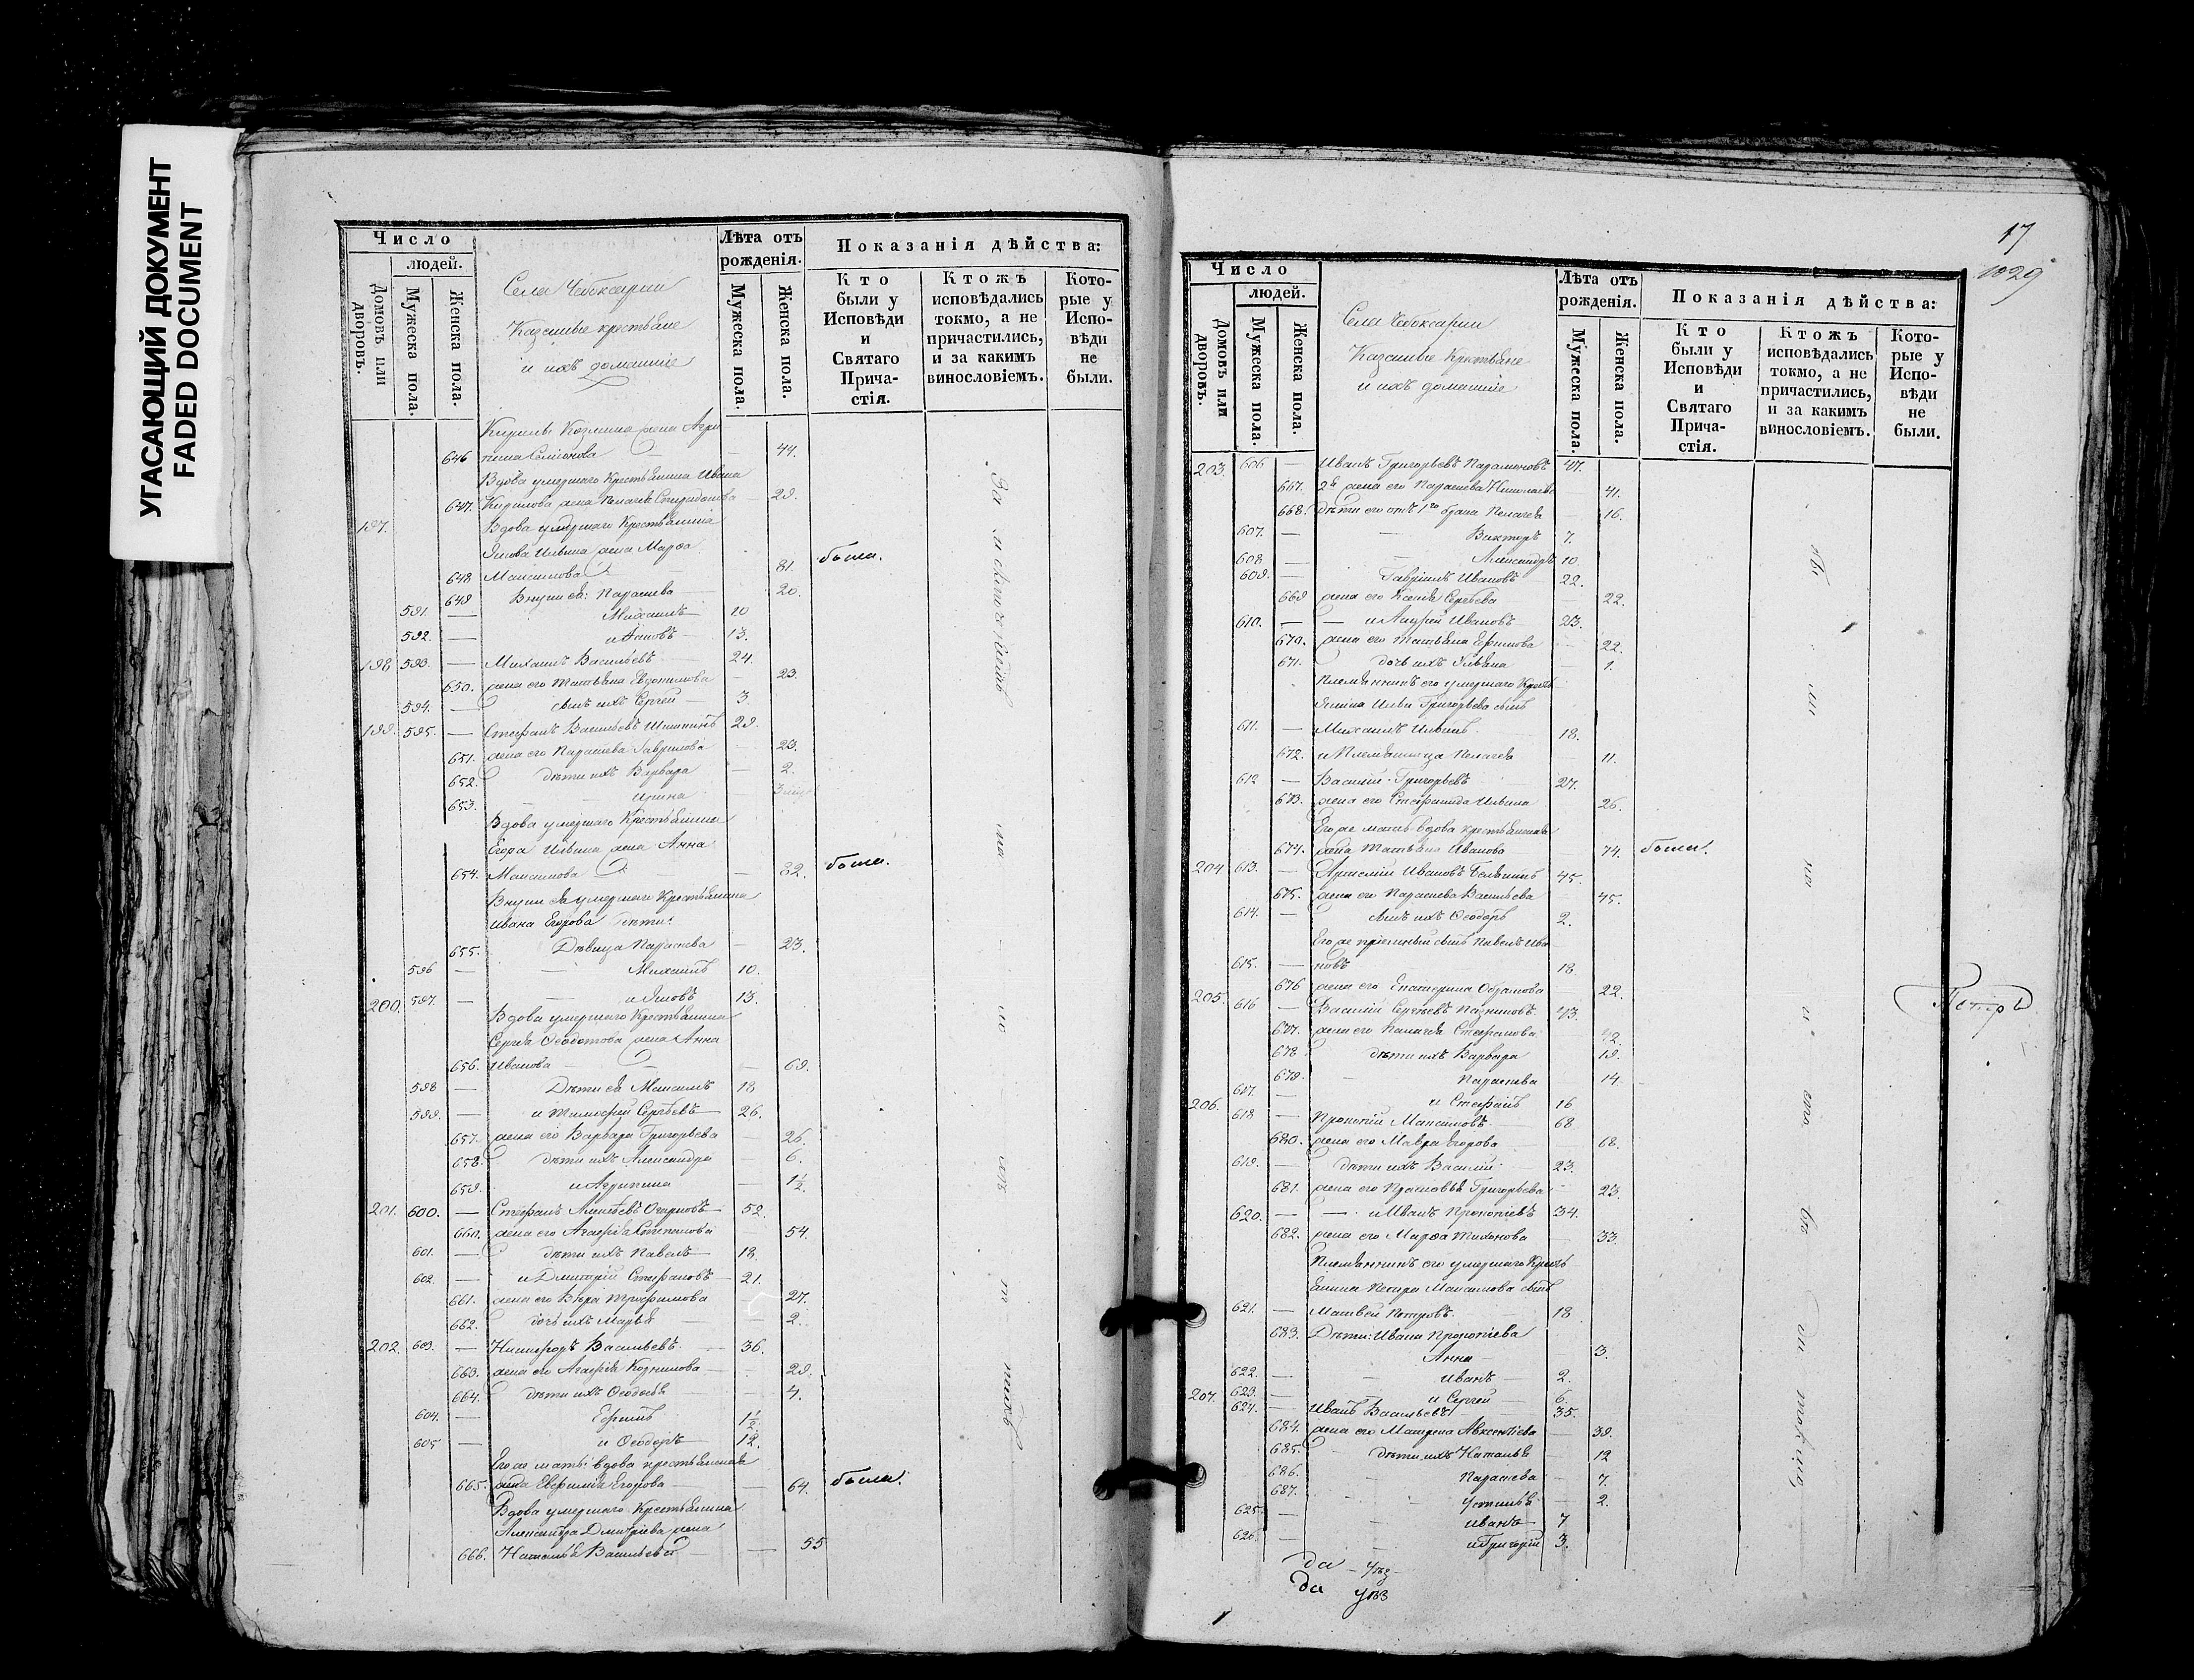 УГАСАЮЩИЙ ДОКУМЕНТ
FADED DOCUMENT
Число
людей.
Домовъ или дворовъ.
Мужеска пола.
Женска пола.
Села Чебоксарки
Казенные крестьяне
и ихъ домашніе
Лѣта отъ рожденія.
Мужеска пола.
Женска пола.
Показанія дѣйства:
Кто были у Исповѣди и Святаго Причастія.
Ктожъ исповѣдались токмо, а не причастились, и за какимъ винословіемъ.
Которые у Исповѣди не были.
Козмина жена Агри
646 пина Семіонова 44.
Вдова умершаго Крестьянина Ивана
647. Кирилова жена Пелагея Спиридонова 29.
197. Вдова умершаго Крестьянина
Якова Ильина жена Марѳа
648 Максимова 81. была.
649 Внуки ея: Параскева 20.
591. — Михаилъ 10
592. — и Іаковъ 13.
198 593. — Михаилъ Васильевъ 24.
650. жена его Татьяна Евдокимова 23.
594. — сынъ ихъ Сергей 3
199. 595. — Стефанъ Васильевъ Шишкинъ 29.
651. жена его Параскева Гаврилова 23.
652. дѣти ихъ Варвара 2.
653. Ирина
Вдова умершаго Крестьянина
Егора Ильина жена Анна
654. Максимова 82. была.
Внуки ея умершаго Крестьянина
Ивана Егорова дѣти:
655. Дѣвица Параскева 23.
596 — Михаилъ 10.
200. 597. — и Яковъ 13.
Вдова умершаго Крестьянина
Сергея Ѳедотова жена Анна
656. Иванова 69.
598 — Дѣти ея Максимъ 18
599. — и Тимофей Сергѣевъ 26.
657. жена его Варвара Григорьева 26.
658. дѣти ихъ Александра 6.
659. и Агрипина 1½
201. 600. — Стефанъ 52.
660. жена его Агафія Степанова 54.
601. — дѣти ихъ Павелъ 18
602. — и Дмитрій Стефановъ 21.
661. жена его Вѣра Трофимова 27.
662. дочь ихъ Марья 2.
202. 603. — Никифоръ Васильевъ 36.
663. жена его Агафія Корнилова 29.
664. дѣти ихъ Ѳеодосья 4.
604. — Ефимъ 1½
605 — и Ѳеодоръ 12.
Его же мать вдова крестьянская
665. жена Евфимія Егорова 64. была.
Вдова умершаго Крестьянина
Александра Дмитріева жена
666. Наталья Васильева 55
17
1029
Число
людей.
Домовъ или дворовъ.
Мужеска пола.
Женска пола.
Села Чебоксарки
Казенные Крестьяне
и ихъ домашніе
Лѣта отъ рожденія.
Мужеска пола.
Женска пола.
Показанія дѣйства:
Кто были у Исповѣди и Святаго Причастія.
Ктожъ исповѣдались токмо, а не причастились, и за какимъ винословіемъ.
Которые у Исповѣди не были.
203. 606 — Иванъ Григорьевъ Парамоновъ 47.
667. 2я жена его Параскева Николаева 41.
668. дѣти его отъ 1го брака Пелагея 16.
607. — Викторъ 7.
608 — Александръ 10
609. — Гавріилъ Ивановъ 22.
669 жена его Ксенія Сергѣева 22.
610. — и Андрей Ивановъ 23.
670. жена его Татьяна Ефимова 22.
671. дочь ихъ Ульяна 1.
Племянникъ его умершаго Кресть
янина Ильи Григорьева сынъ
611. — Михаилъ Ильинъ 18.
672. и Племянница Пелагея 11.
612 — Василій Григорьевъ 27.
673. жена его Стефанида Ильина 26.
Его же мать вдова крестьянская
674. жена Татьяна Иванова 74. была.
204 613. — Ивановъ 45.
675. жена его Параскева Васильева 45.
614. — сынъ ихъ Ѳеодоръ 2.
Его же пріемный сынъ Павелъ Ива
615. — новъ 18
676 жена его Екатерина 22.
205. 616 — Василій Сергѣевъ 43.
677. жена его Пелагея Стефанова 42.
678 дѣти ихъ Варвара 19.
679. Параскева 14.
617. — и Стефанъ 16
206. 618 — Прокопій Максимовъ 68
680. жена его Мавра Егорова 68.
619. — дѣти ихъ Василій 23.
681. жена его Григорьева 23.
620. — и Иванъ Прокопіевъ 34.
682. жена его Марѳа Тихонова 33.
Племянникъ его умершаго Кресть
янина Петра Максимова сынъ
621. — Матвей Петровъ 18
683. Дѣти: Ивана Прокопіева
Анна 3.
622. — Иванъ 2.
623. — и Сергей 6.
207. 624. — Иванъ Васильевъ 35.
684. жена его Матрена Авксентіева 39.
685. дѣти ихъ Наталья 12
686. Параскева 7.
687. Устинья 2.
625. — Иванъ 7
626. — и Григорій 3.
Петръ
да
да